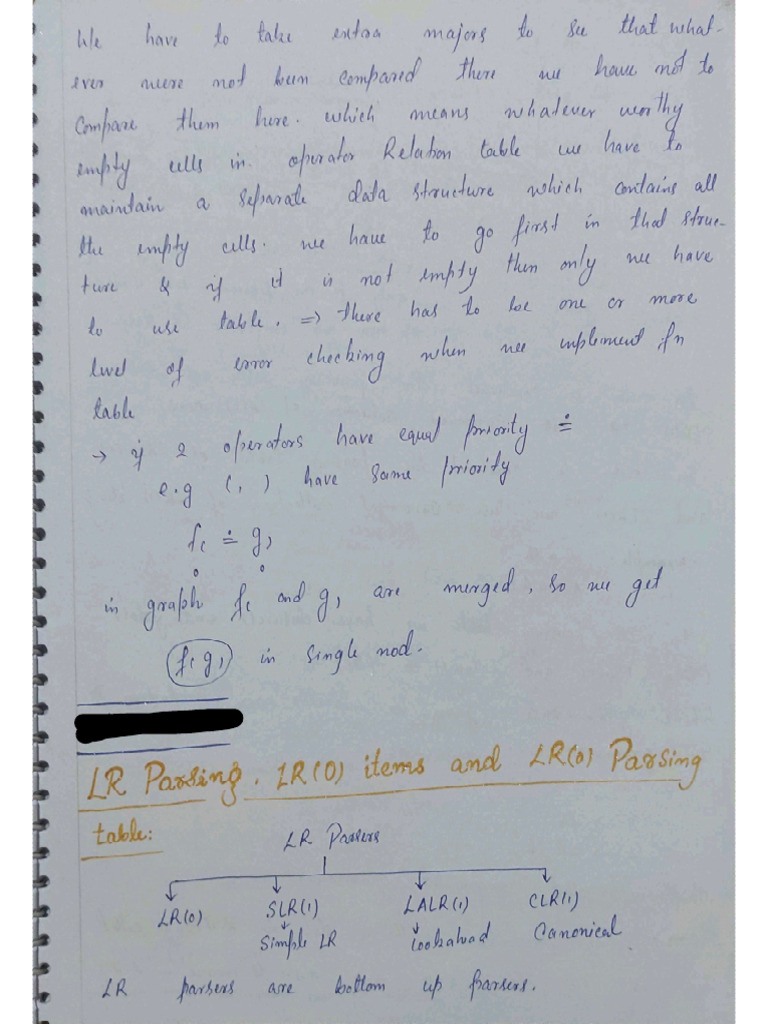 We have to take extra majors to see that what-
ever were not been compared there we have not to
compare them here. which means whatever worthy
empty cells in operator Relation table we have to
maintain a separate data structure which contains all
the empty cells. we have to go first in that struc-
ture & if it is not empty then only we have
to use table. ⇒ there has to be one or more
level of error checking when we implement fn
table
→ if 2 operators have equal priority ≐
e.g (, ) have same priority
f( ≐ g)
in graph f( and g) are merged, so we get
f( g) in single nod.
LR Parsing. LR(0) items and LR(0) Parsing
table:
LR Parsers
LR(0) SLR(1) LALR(1) CLR(1)
Simple LR Lookahead Canonical
LR parsers are bottom up parsers.